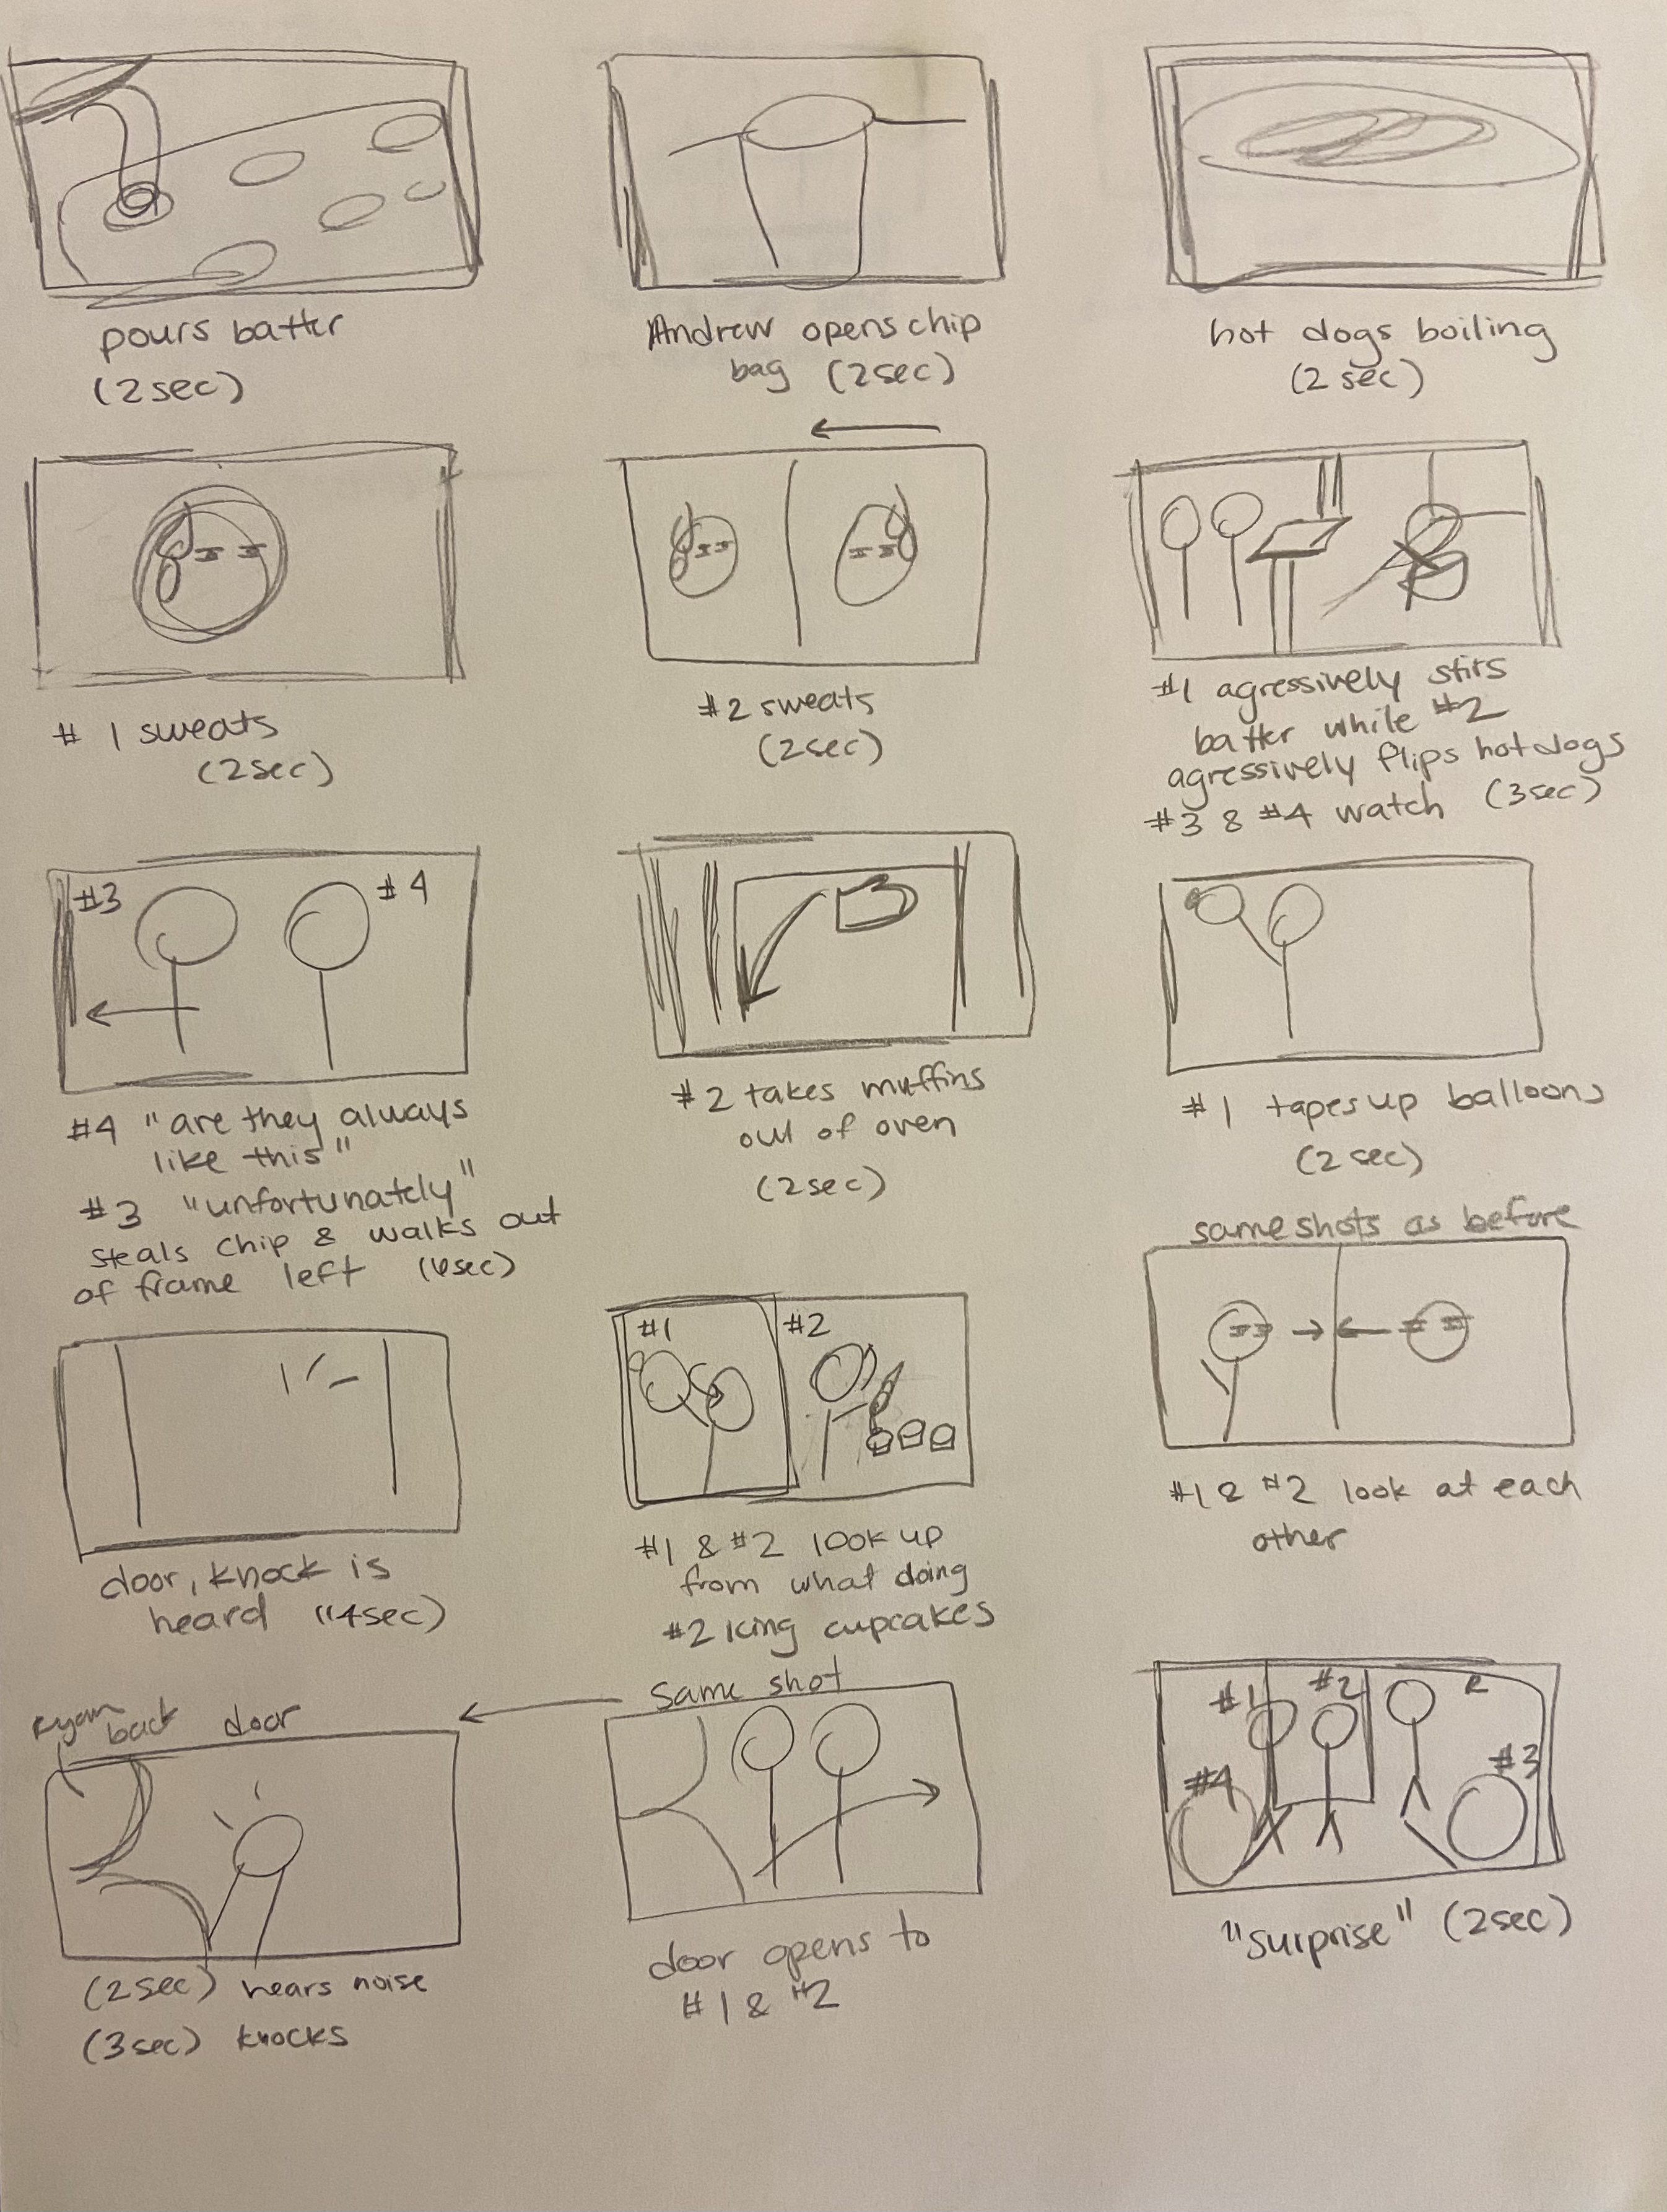 pours batter
(2sec)
Andrew opens chip
bag (2sec)
hot dogs boiling
(2 sec)
# 1 sweats
(2sec)
#2 sweats
(2sec)
#1 agressively stirs
batter while #2
agressively flips hotdogs
#3 & #4 watch (3sec)
#3
#4
#4 "are they always
like this"
#3 "unfortunately"
steals chip & walks out
of frame left (6sec)
#2 takes muffins
out of oven
(2sec)
#1 tapes up balloons
(2 sec)
door, knock is
heard (4sec)
#1
#2
#1 & #2 look up
from what doing
#2 icing cupcakes
same shots as before
#1 & #2 look at each
other
Ryan back door
(2sec) hears noise
(3sec) knocks
same shot
door opens to
#1 & #2
#1
#2
R
#4
#3
"surprise" (2sec)